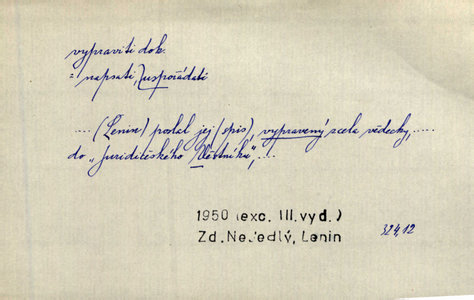 vypraviti dok.
= napsati, uspořádati
.... (Lenin) poslal jej (spis), vypravený zcela vědecky, ....
do „Juridičeského Věstníku“, ...
1950 (exc. III. vyd.)
Zd. Nejedlý, Lenin
324,12